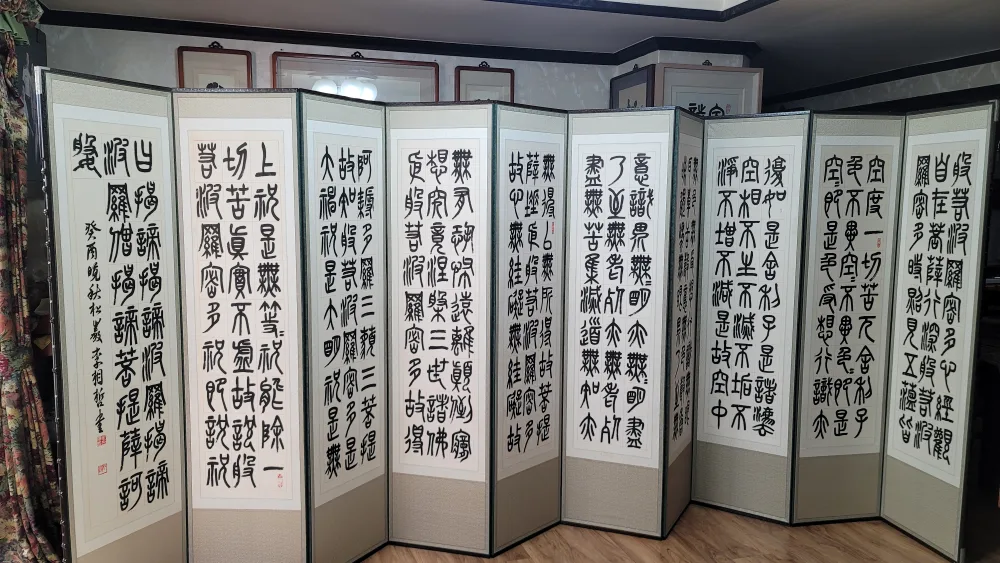 般若波羅密多心經觀
自在菩薩行深般若波
羅密多時照見五蘊皆
空度一切苦厄舍利子
色不異空〻不異色〻即是
空〻即是色受想行識亦
復如是舍利子是諸法
空相不生不滅不垢不
淨不增不減是故空中
意識界無〻明亦無〻明盡
乃至無老死亦無老死
盡無苦集滅道無知亦
無得以無所得故菩提
薩埵依般若波羅密多
故心無罣礙無罣礙故
無有恐怖遠離顚倒夢
想究竟涅槃三世諸佛
依般若波羅密多故得
阿耨多羅三藐三菩提
故知般若波羅密多是
大神祝是大明祝是無
上祝是無等〻祝能除一
切苦眞實不虛故說般
若波羅密多祝即說祝
曰揭諦揭諦波羅揭諦
波羅僧揭諦菩提薩訶
婆
癸酉晚秋松巖李相哲書